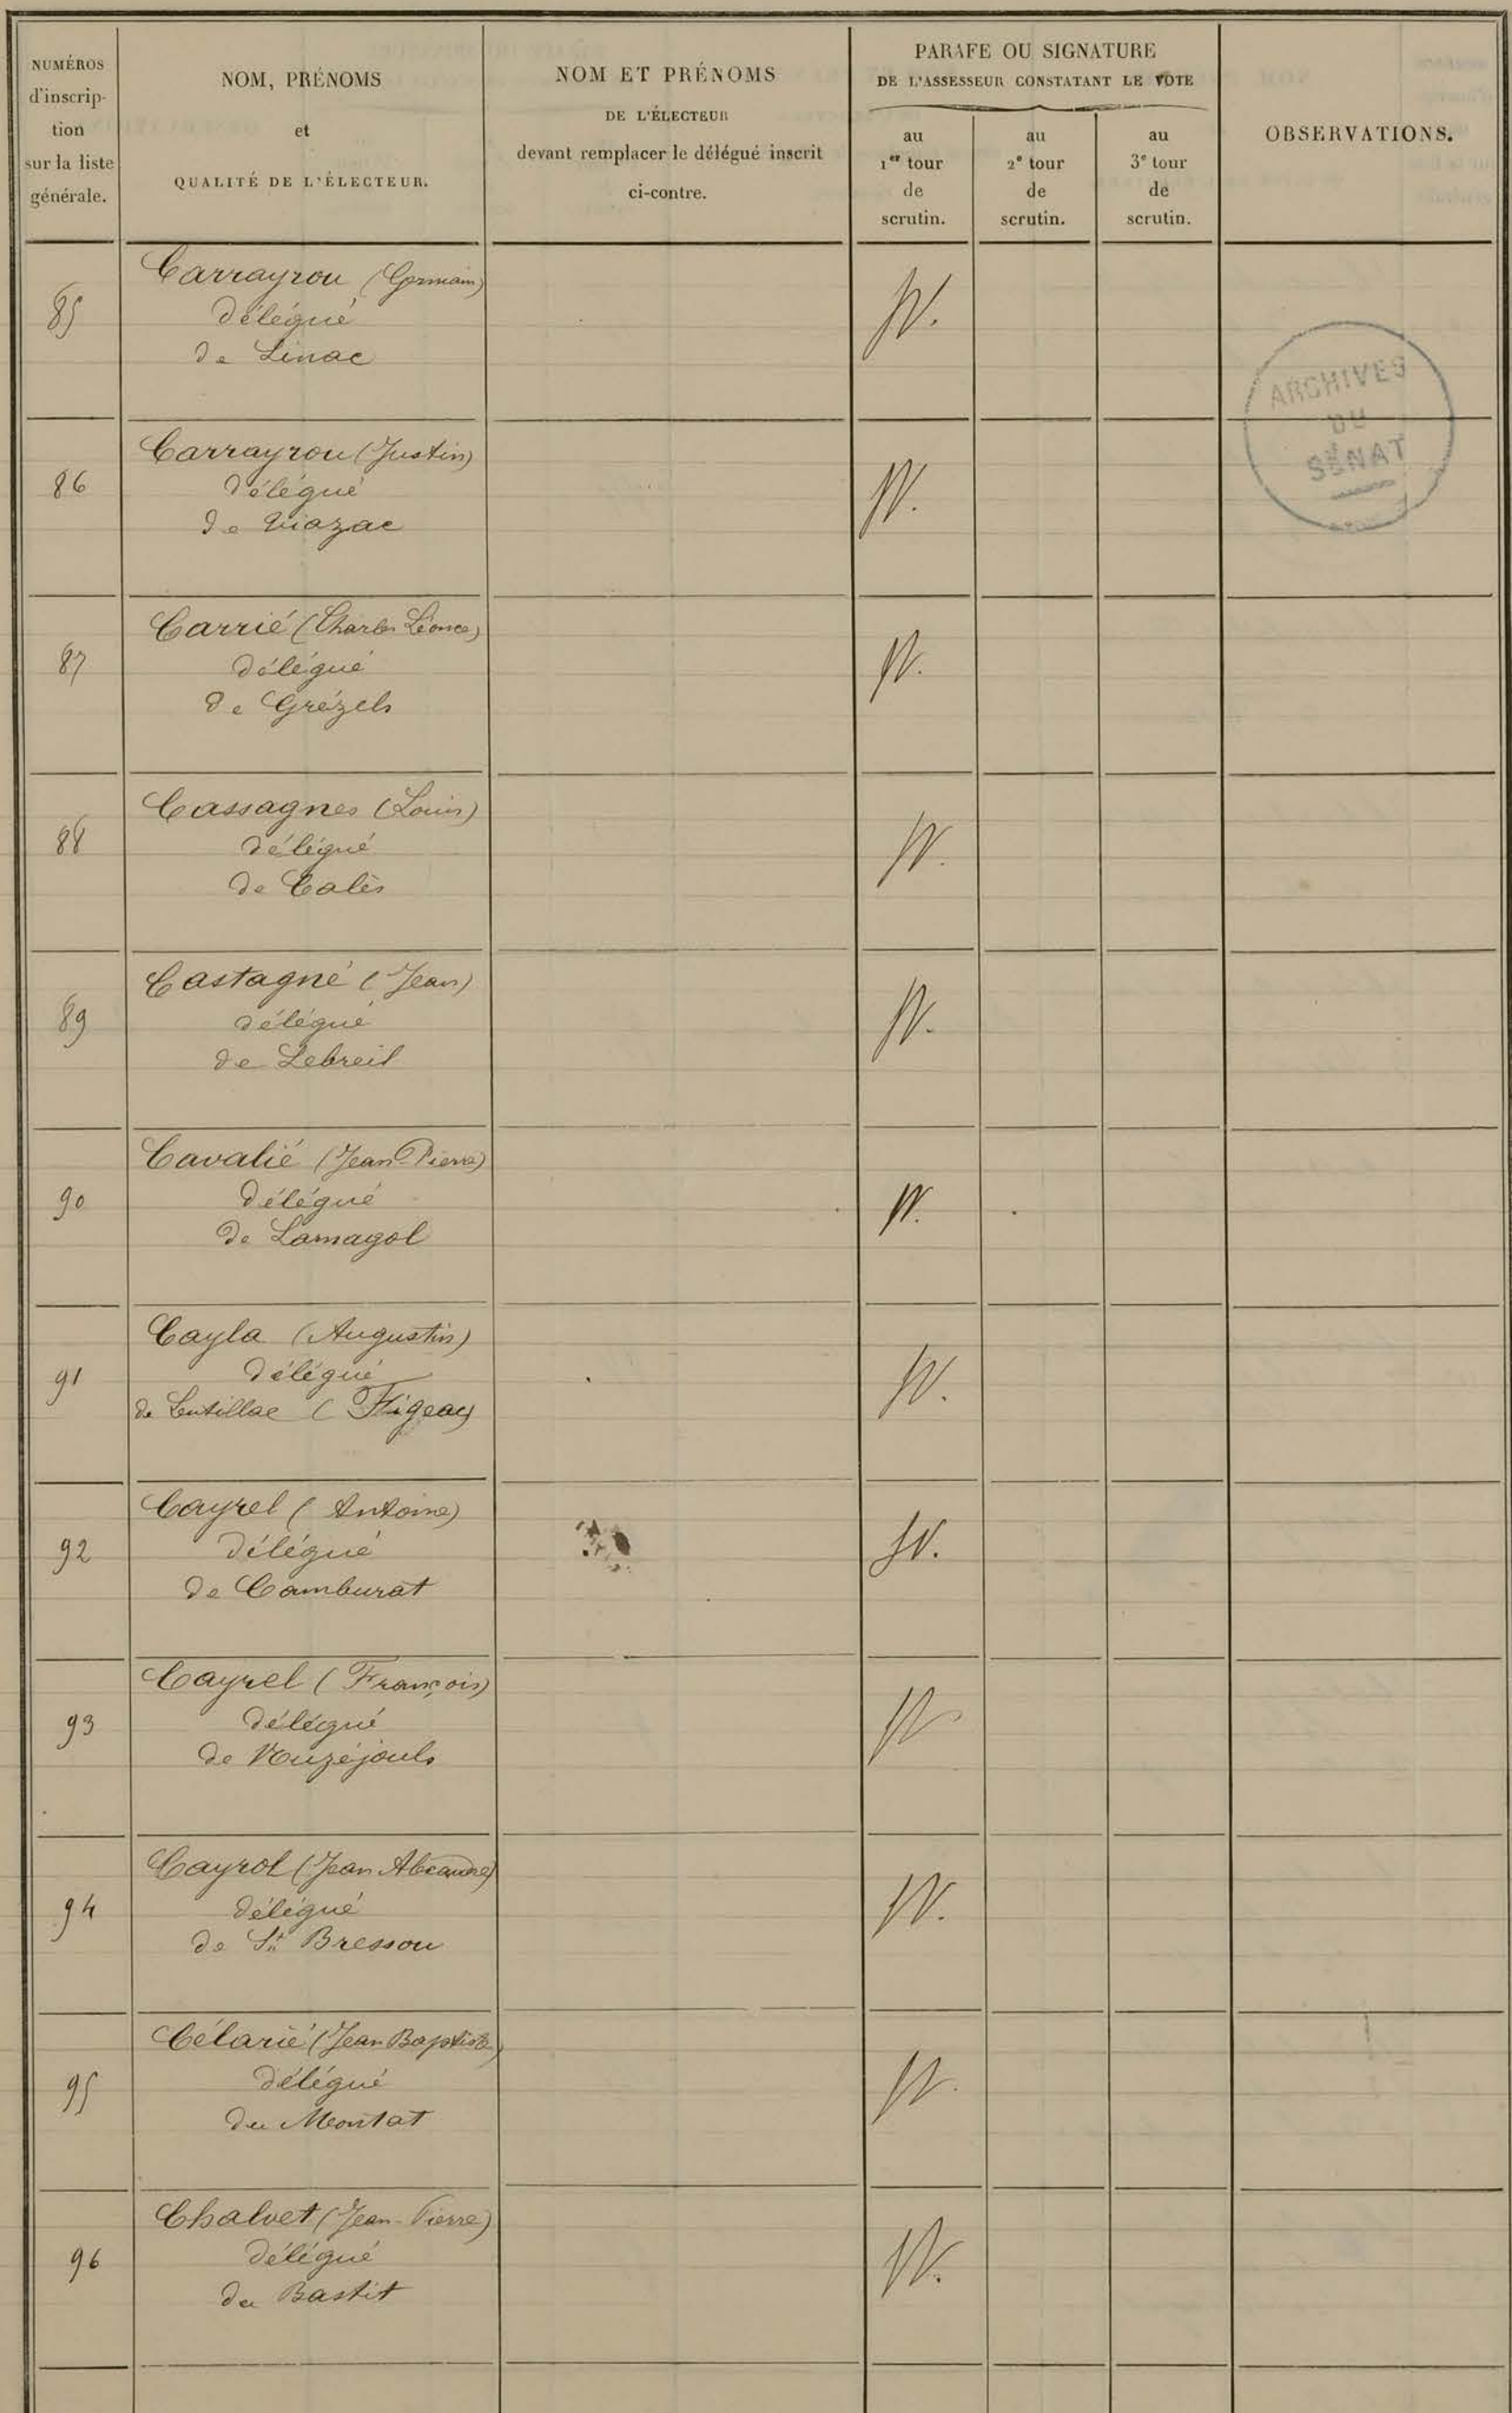 NUMÉROS
d'inscrip-
tion
sur la liste
générale.
NOM, PRÉNOMS
et
QUALITÉ DE L'ÉLECTEUR.
NOM ET PRÉNOMS
DE L'ÉLECTEUR
devant remplacer le délégué inscrit
ci-contre.
PARAFE OU SIGNATURE
DE L'ASSESSEUR CONSTATANT LE VOTE
au
1er tour
de
scrutin.
au
2e tour
de
scrutin.
au
3e tour
de
scrutin.
OBSERVATIONS.
85
Carrayrou (Germain)
délégué
de Linac
ARCHIVES
DU
SÉNAT
86
Carrayrou (Justin)
délégué
de Viazac
87
Carrié (Charles Léonce)
délégué
de Grézels
88
Cassagnes (Louis)
délégué
de Calès
89
Castagné (Jean)
délégué
de Lebreil
90
Cavalié (Jean-Pierre)
délégué
de Lamagol
91
Cayla (Augustin)
délégué
de Lentillac (Figeac)
92
Cayrel (Antoine)
délégué
de Camburat
93
Cayrel (François)
délégué
de Nuzéjouls
94
Cayrol (Jean Alexandre)
délégué
de St Bressou
95
Célarié (Jean Baptiste)
délégué
du Montat
96
Chalvet (Jean-Pierre)
délégué
du Bastit